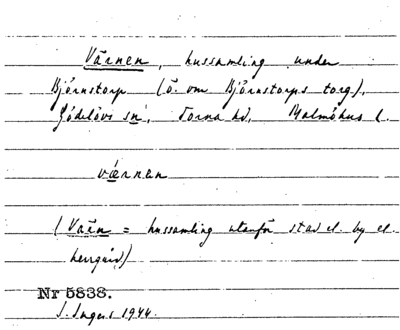 Värnen, hussamling under
Björnstorp (ö. om Björnstorps torg),
Gödelövs sn, Torna hd, Malmöhus l.
værnen
(Vään = hussamling utanför stad el. by el.
herrgård)
Nr 5838.
S. Ingers 1944.